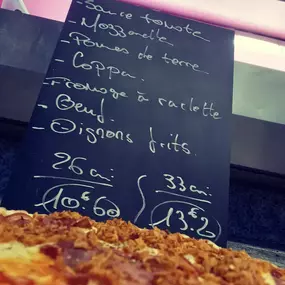 - Sauce tomate
- Mozzarella
- Pommes de terre
- Coppa.
- Fromage à raclette
- Oeuf.
- Oignons frits.
26 cm 33 cm
10€60 13€2